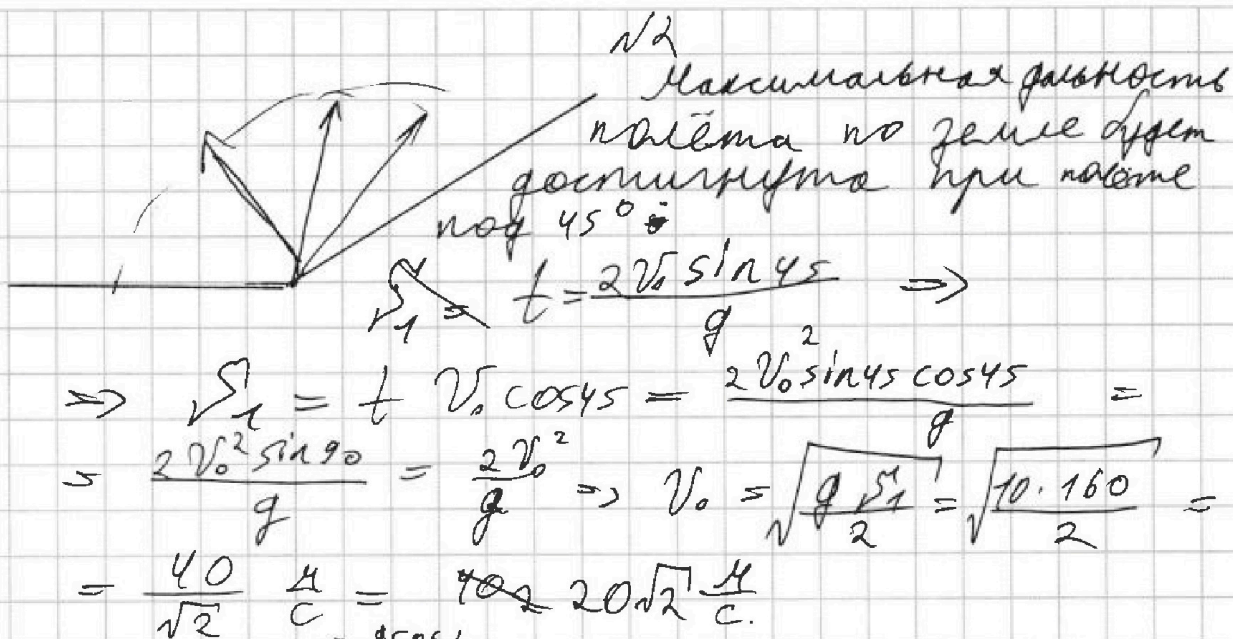 √2
Максимальная дальность
полёта по земле будет
достигнута при полёте
под 45°
S₁ = t = 2V₀ sin 45 / g =>
=> S₁ = t V₀ cos45 = 2V₀² sin45 cos45 / g =
= 2V₀² sin90 / g = 2V₀² / g => V₀ = √(g S₁ / 2) = √(10·160 / 2) =
= 40 / √2 м/с = 20√2 м/с.